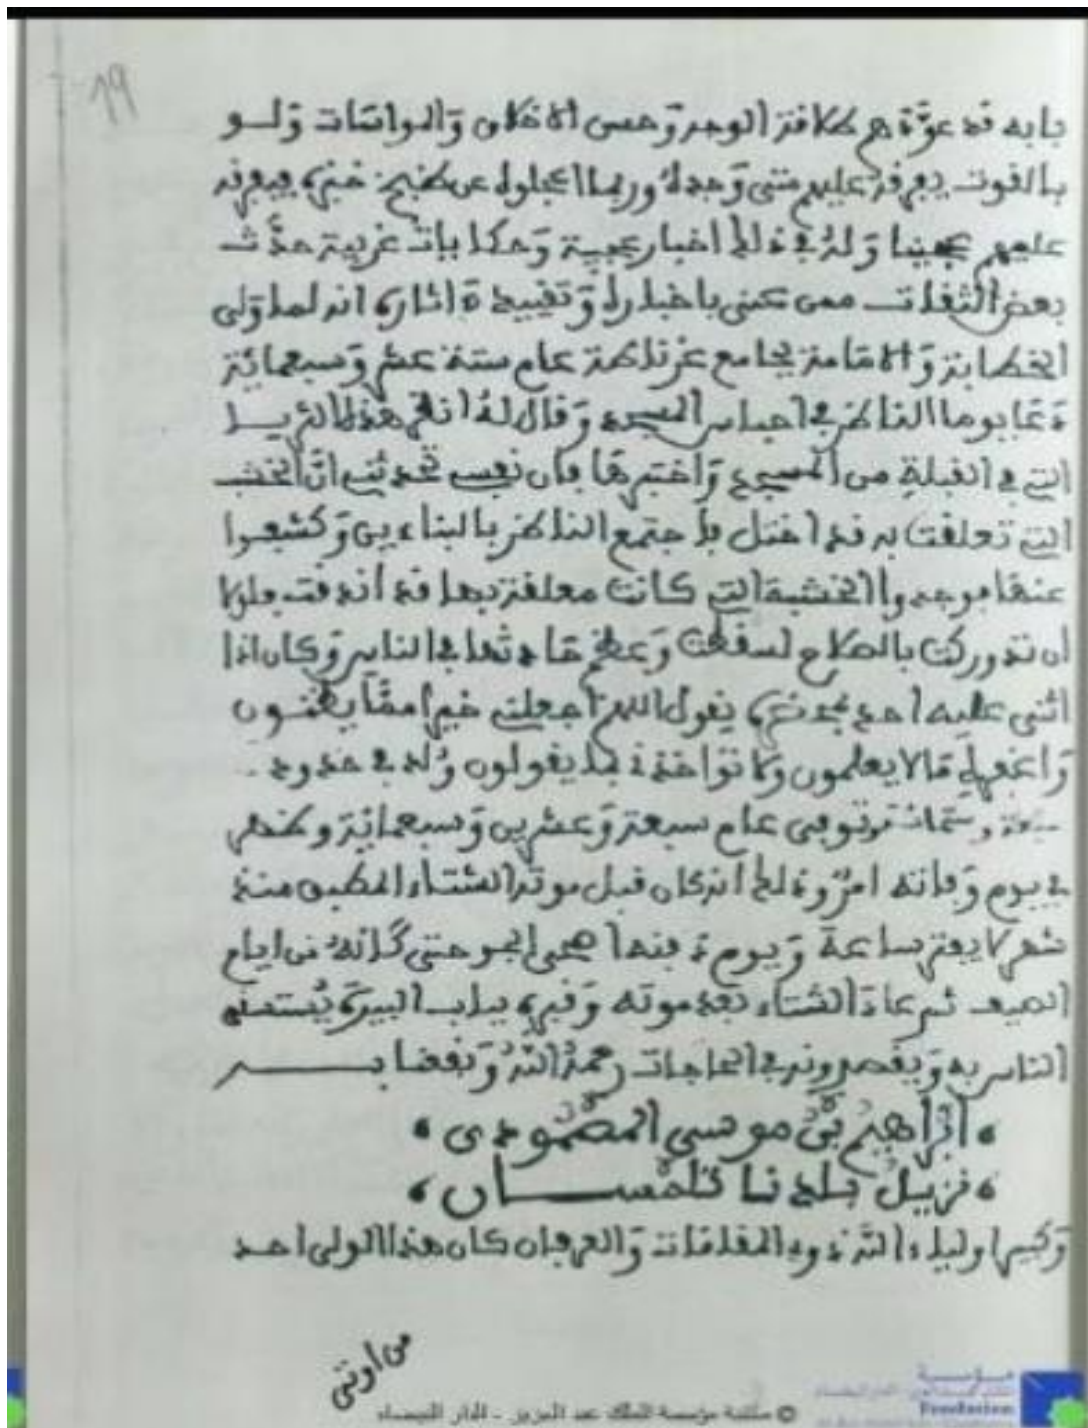 19
بابه قد عوده مع طلاقة الوجه وحسن الاخلاق والمواسات ولو
بالقوت يفرقه عليهم متى وجده وربما اعجلوه عن طبخ خبزه فيفرقه
عليهم عجينا وله في ذلك اخبار عجيبة وحكايات غريبة حدث
بعض الثقات ممن عني باخباره وتقييد ءاثاره انه لما ولي
الخطابة والامامة بجامع غرناطة عام ستة عشر وسبعمائة
دعا يوما الناظر في احباس المسجد وقال له انظر هذه الثريا
التي في القبلة من المسجد واختبرها فان نفسي تحدثني ان الخشب
التي تعلقت به قد اختل فاجتمع الناظر بالبناءين وكشفوا
عنها فوجدوا الخشبة التي كانت معلقة بها قد اندقت فلولا
ان تدوركت بالصلاح لسقطت وعظم حادثها في الناس وكان اذا
اثنى عليه احد بحضرته يقول اللهم اجعلني خيرا مما يظنون
واغفر لي ما لا يعلمون ولا تؤاخذني بما يقولون ولد في حدود
وستمائة وتوفي عام سبعة وعشرين وسبعمائة وظهر
في يوم وفاته امر وذلك انه كان قبل موته الشتاء المطبق منذ
شهر لا يفتر ساعة ويوم دفنه اصحى الجو حتى كانه من ايام
الصيف ثم عاد الشتاء بعد موته وقبره بباب البيرة يستسقي
الناس به ويقصدونه في الحاجات رحمه الله ونفعنا به
ابراهيم بن موسى المصمودي
نزيل بلدنا تلمسان
وكبير اولياء الله ذوي المقامات والعرفان كان هذا الولي احد
من اوتي
© مكتبة مؤسسة الملك عبد العزيز - الدار البيضاء
مؤسسة
Fondation